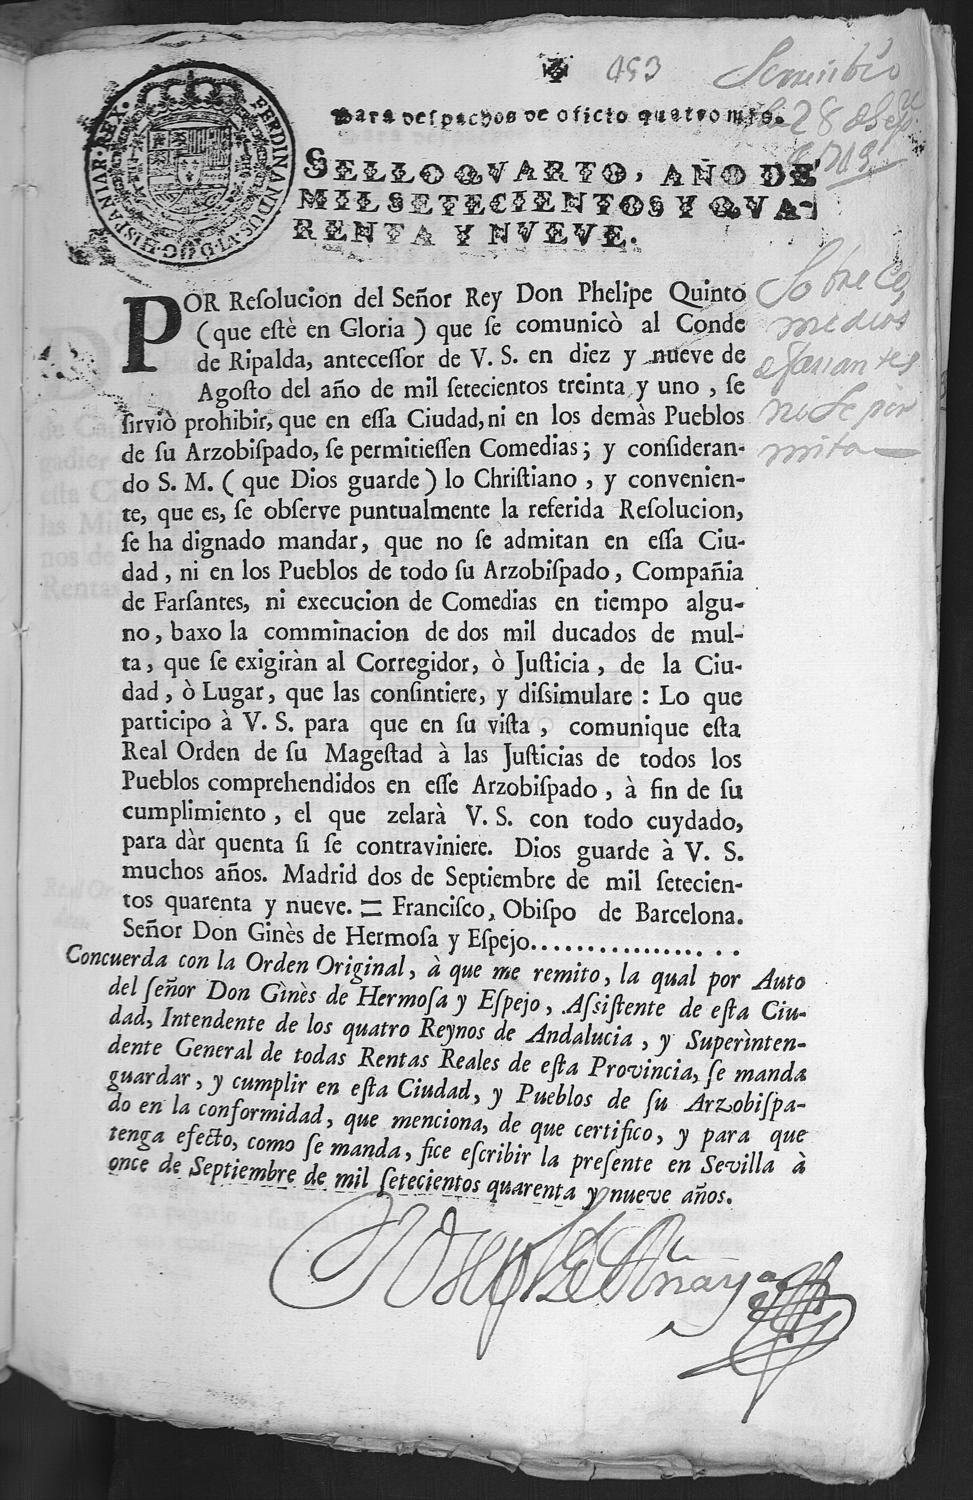 FERDINANDUS. VI. D. G. HISPANIAR. REX.
453
Para despachos de oficio quatro mrs.
SELLO QVARTO, AÑO DE
MIL SETECIENTOS Y QVA-
RENTA Y NVEVE.
28 de Sepre
Sobre Co
medias
de farsantes
no Se per
mita
POR Resolucion del Señor Rey Don Phelipe Quinto
(que estè en Gloria) que se comunicò al Conde
de Ripalda, antecessor de V. S. en diez y nueve de
Agosto del año de mil setecientos treinta y uno, se
sirviò prohibir, que en essa Ciudad, ni en los demàs Pueblos
de su Arzobispado, se permitiessen Comedias; y consideran-
do S. M. (que Dios guarde) lo Christiano, y convenien-
te, que es, se observe puntualmente la referida Resolucion,
se ha dignado mandar, que no se admitan en essa Ciu-
dad, ni en los Pueblos de todo su Arzobispado, Compañia
de Farsantes, ni execucion de Comedias en tiempo algu-
no, baxo la comminacion de dos mil ducados de mul-
ta, que se exigiràn al Corregidor, ò Justicia, de la Ciu-
dad, ò Lugar, que las consintiere, y dissimulare: Lo que
participo à V. S. para que en su vista, comunique esta
Real Orden de su Magestad à las Justicias de todos los
Pueblos comprehendidos en esse Arzobispado, à fin de su
cumplimiento, el que zelarà V. S. con todo cuydado,
para dàr quenta si se contraviniere. Dios guarde à V. S.
muchos años. Madrid dos de Septiembre de mil setecien-
tos quarenta y nueve. = Francisco, Obispo de Barcelona.
Señor Don Ginès de Hermosa y Espejo..................
Concuerda con la Orden Original, à que me remito, la qual por Auto
del señor Don Ginès de Hermosa y Espejo, Assistente de esta Ciu-
dad, Intendente de los quatro Reynos de Andalucia, y Superinten-
dente General de todas Rentas Reales de esta Provincia, se manda
guardar, y cumplir en esta Ciudad, y Pueblos de su Arzobispa-
do en la conformidad, que menciona, de que certifico, y para que
tenga efecto, como se manda, fice escribir la presente en Sevilla à
once de Septiembre de mil setecientos quarenta y nueve años.